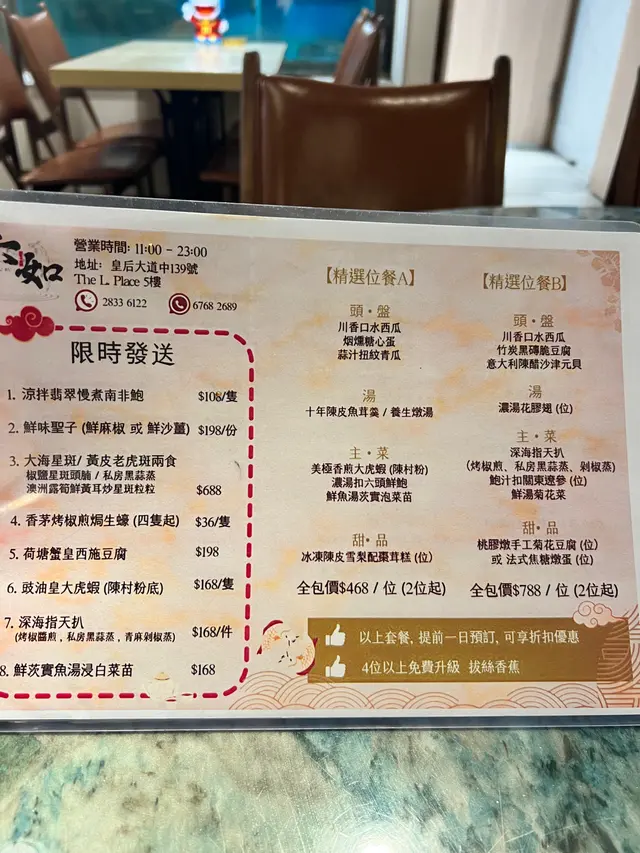 如
營業時間: 11:00 - 23:00
地址: 皇后大道中139號
The L. Place 5樓
2833 6122
6768 2689
限時發送
1. 涼拌翡翠慢煮南非鮑 $108/隻
2. 鮮味聖子 (鮮麻椒 或 鮮沙薑) $198/份
3. 大海星斑/ 黃皮老虎斑兩食
椒鹽星斑頭腩 / 私房黑蒜蒸
澳洲露筍鮮黃耳炒星斑粒粒 $688
4. 香茅烤椒煎焗生蠔 (四隻起) $36/隻
5. 荷塘蟹皇西施豆腐 $198
6. 豉油皇大虎蝦 (陳村粉底) $168/隻
7. 深海指天扒
(烤椒醬煎, 私房黑蒜蒸, 青麻剁椒蒸) $168/件
8. 鮮茨實魚湯浸白菜苗 $168
【精選位餐A】
頭・盤
川香口水西瓜
烟燻糖心蛋
蒜汁扭紋青瓜
湯
十年陳皮魚茸羹 / 養生燉湯
主・菜
美極香煎大虎蝦 (陳村粉)
濃湯扣六頭鮮鮑
鮮魚湯茨實泡菜苗
甜・品
冰凍陳皮雪梨配棗茸糕 (位)
全包價$468 / 位 (2位起)
【精選位餐B】
頭・盤
川香口水西瓜
竹炭黑磚脆豆腐
意大利陳醋沙津元貝
湯
濃湯花膠翅 (位)
主・菜
深海指天扒
(烤椒煎、私房黑蒜蒸、剁椒蒸)
鮑汁扣關東遼參 (位)
鮮湯菊花菜
甜・品
桃膠燉手工菊花豆腐 (位)
或 法式焦糖燉蛋 (位)
全包價$788 / 位 (2位起)
以上套餐, 提前一日預訂, 可享折扣優惠
4位以上免費升級 拔絲香蕉